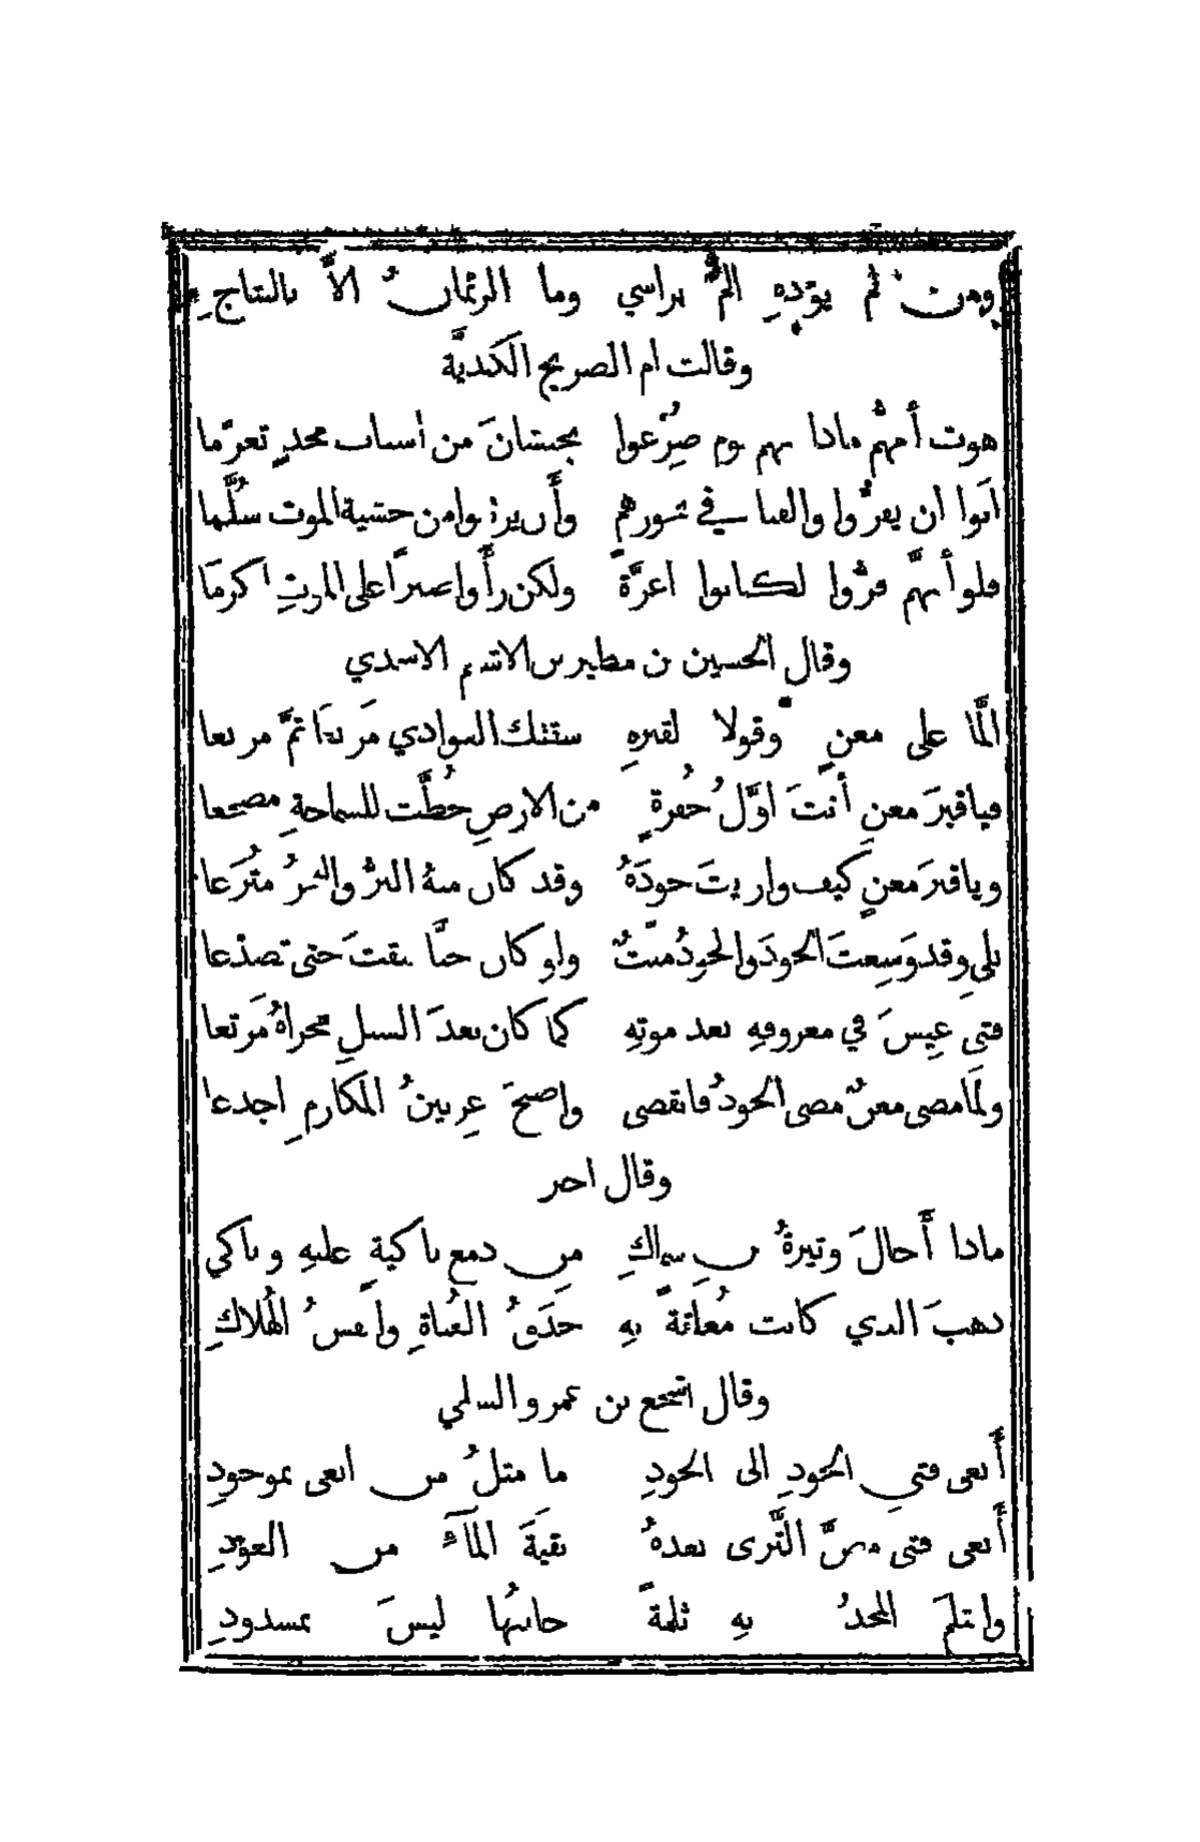 ومن لم يؤدبهِ المٌ براسي وما الرئمان الاَّ بالنتاجِ
وقالت ام الصريح الكنديَّة
هوت أمهُم ماذا بهم يوم صُرِّعوا بجيشانَ من اسباب مجدٍ تصرّما
ابَوا ان يفرُّوا والقنا في نحورهم وأن يرتقوا من خشية الموت سُلَّما
فلو أنهَّم فرُّوا لكانوا اعزَّةً ولكن رأَوا صبراً على الموتِ اكرمَا
وقال الحسين بن مطير بن الاشيم الاسدي
المَّا على معنٍ وقولا لقبرهِ سقتك الغوادي مَربَعَا ثمَّ مربعا
فيا قبرَ معنٍ أنتَ اوَّلُ حُفرةٍ من الارضِ خُطَّت للسماحةِ مضجعا
ويا قبرَ معنٍ كيف واريتَ جودَهُ وقد كان منهُ البرُّ والبحرُ مُترَعا
بلى وقد وَسِعتَ الجودَ والجودُ ميّتٌ ولو كان حيًّا ضقتَ حتى تصدّعا
فتى عِيسَ في معروفهِ بعد موتهِ كما كان بعدَ السيلِ مجراهُ مَرتعا
ولمَّا مضى معنٌ مضى الجودُ فانقضى واصبحَ عِرنينُ المكارمِ اجدعا
وقال اخر
ماذا أَحالَ وتيرةُ بن سماكِ من دمعِ باكيةٍ عليهِ وباكي
ذهبَ الذي كانت مُعلقةً بهِ حَدَقُ العُناةِ وانفسُ الهُلاكِ
وقال اشجع بن عمرو السلمي
أَنعى فتى الجودِ الى الجودِ ما مثلُ من انعى بموجودِ
أَنعى فتى مصَّ الثَّرى بعدهُ بقيَةَ المآءِ من العودِ
وانثلمَ المجدُ بهِ ثلمةً جانبُها ليسَ بمسدودِ